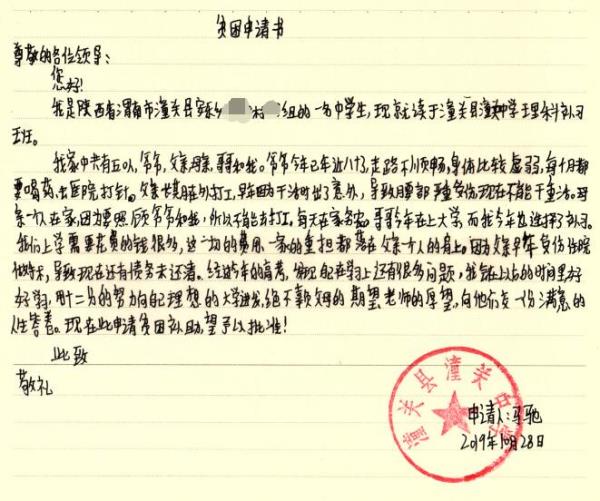 贫困申请书
尊敬的各位领导：
您好！
我是陕西省渭南市潼关县安乐乡村组的一名中学生，现就读于潼关县潼关中学理科补习
班。
我家中共有五口人，爷爷，父亲，母亲，哥哥和我。爷爷今年已年近八十了，走路不顺畅，身体比较虚弱，每个月都
要喝药，去医院打针。父亲长期在外打工，早年因干活时出了意外，导致腰部受伤现在不能干重活。母
亲一个人在家，因为要照顾爷爷和我，所以不能去打工，每天在家务农，哥哥今年在上大学，而我今年也选择了补习。
我们上学需要花费的钱很多，这一切的费用，一家的重担都落在父亲一个人的身上。因为父亲早年身伤住院
他时天，导致现在还有债务未还清。经过今年的高考，发现自己在学习上还有很多问题，我会在以后的时间里好
好学习，用十二分的努力向自己理想的大学进发，绝不辜负父母的期望，老师的厚望，向他们交一份满意的
人生答卷。现在此申请贫困补助，望予以批准！
此致
敬礼
申请人：马驰
2019年10月28日
潼关县潼关中学